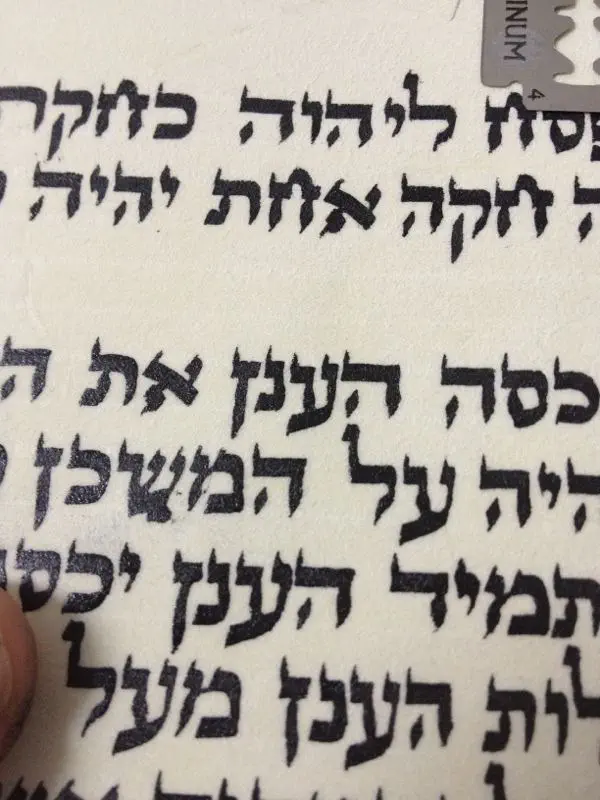 INUM
4
פסח ליהוה כחקת
ה חקה אחת יהיה
כסה הענן את ה
היה על המשכן
תמיד הענן יכסנ
לות הענן מעל